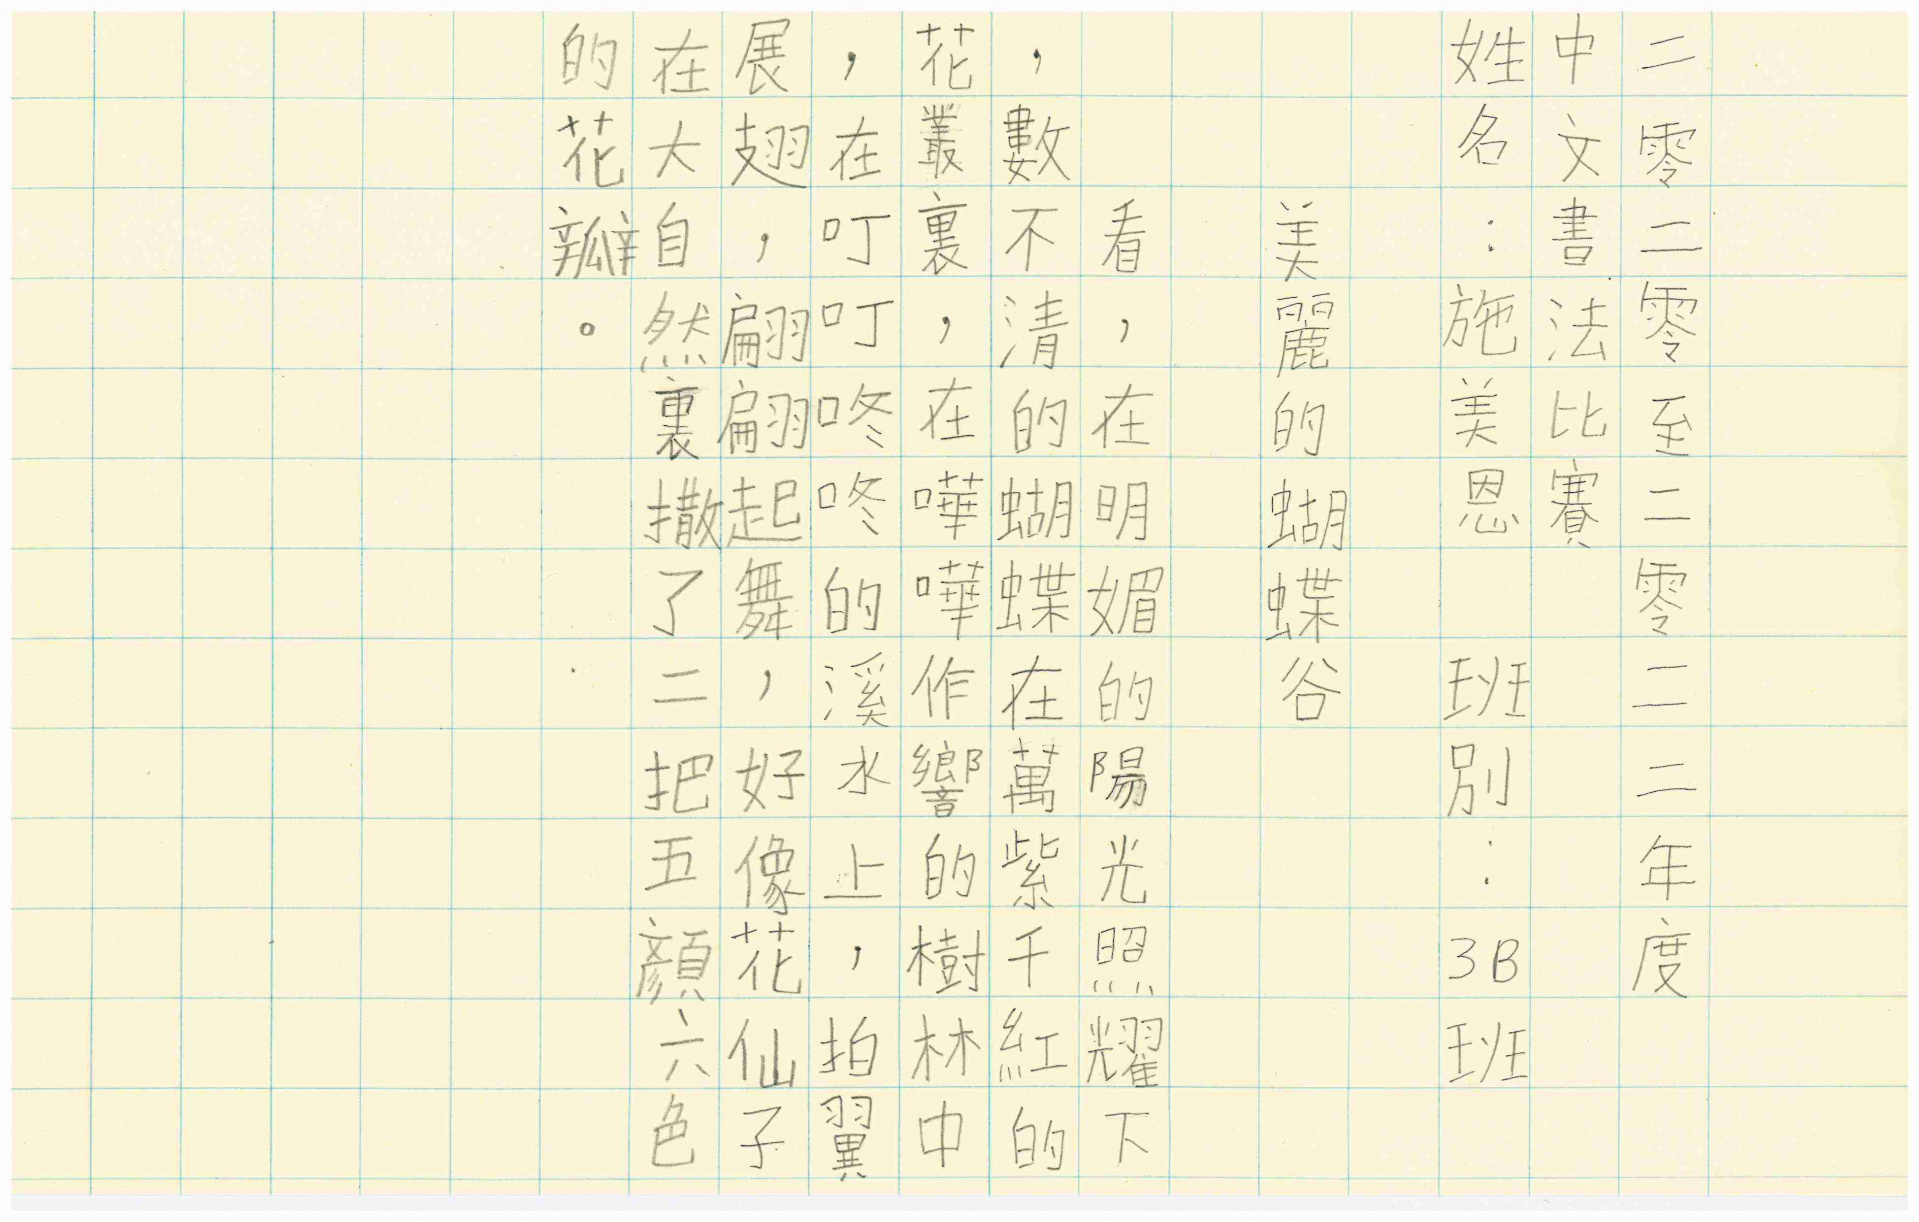 二零二零至二零二二年度
中文書法比賽
姓名：施美恩 班別：3B班
美麗的蝴蝶谷
看，在明媚的陽光照耀下
，數不清的蝴蝶在萬紫千紅的
花叢裏，在嘩嘩作響的樹林中
，在叮叮咚咚的溪水上，拍翼
展翅，翩翩起舞，好像花仙子
在大自然裏撒了二把五顏六色
的花瓣。